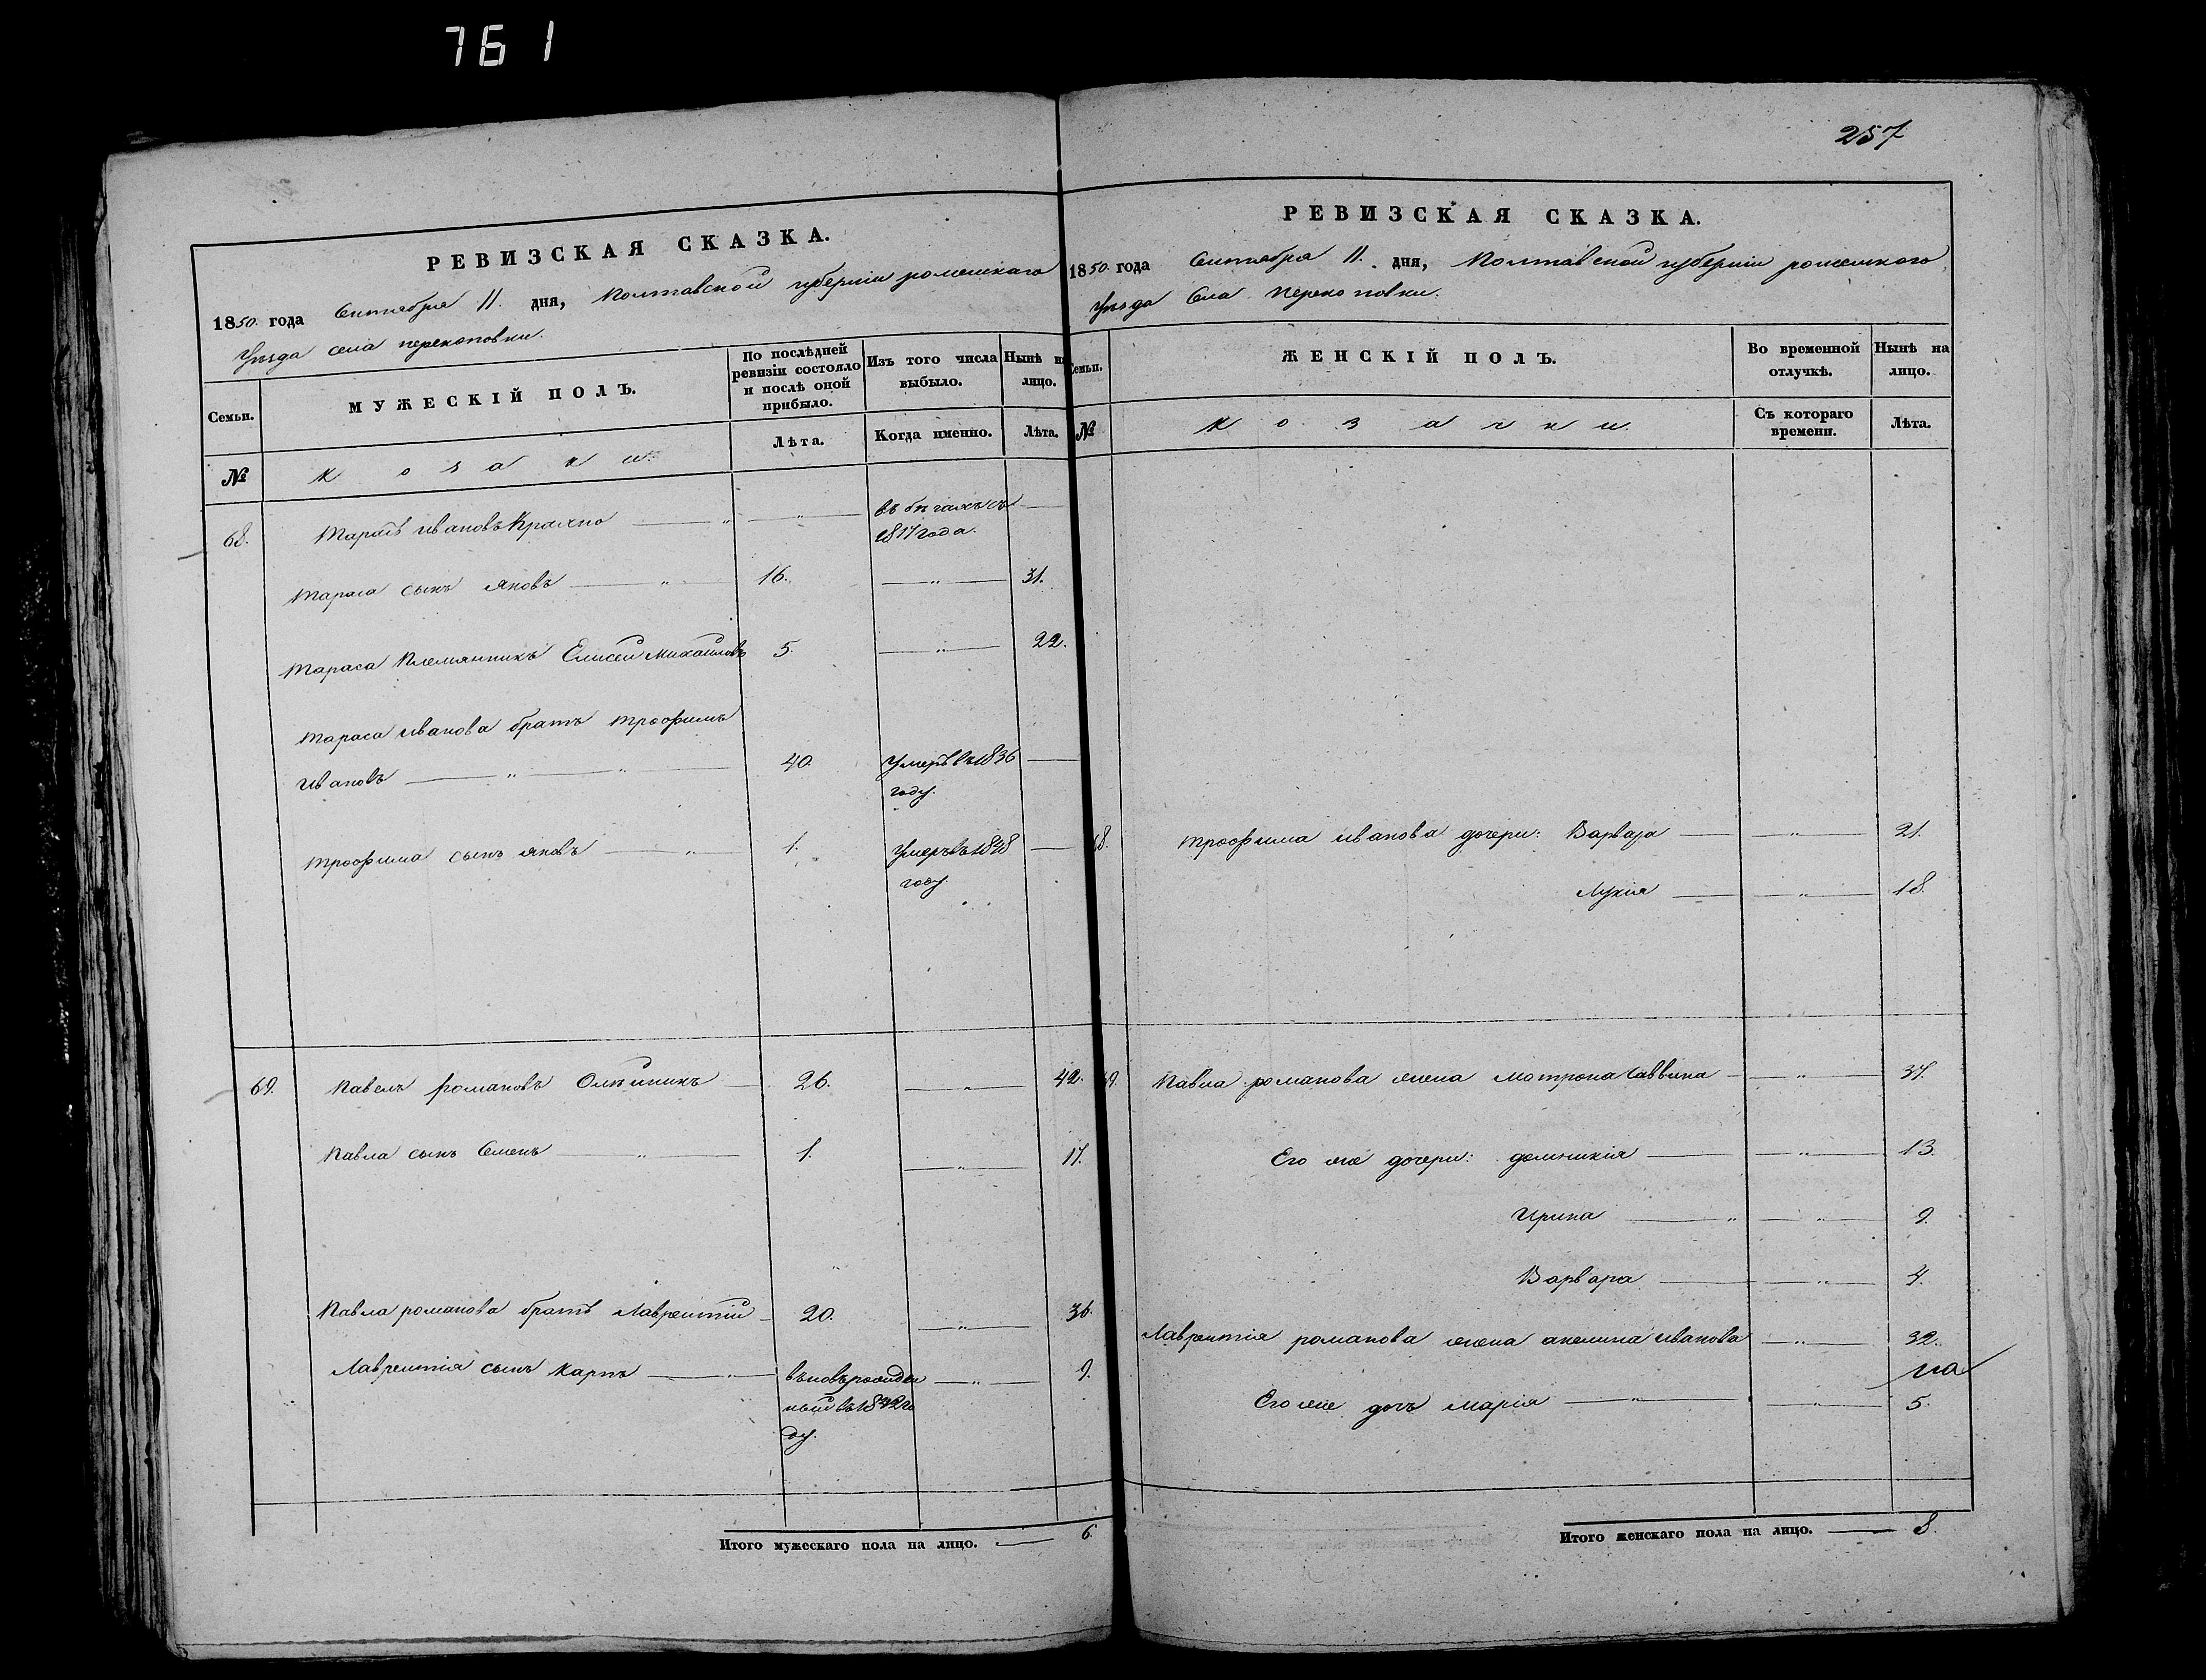 761
257
РЕВИЗСКАЯ СКАЗКА.
1850. года Сентября 11. дня, Полтавской губерніи роменскаго
Уѣзда села перекоповки.
Семьи.
МУЖЕСКІЙ ПОЛЪ.
По послѣдней ревизіи состояло и послѣ оной прибыло.
Изъ того числа выбыло.
Нынѣ на лицо.
Лѣта.
Когда именно.
Лѣта.
№
козаки.
68. Тарасъ ивановъ въ бѣгахъ съ
1817 года.
Тараса сынъ яковъ 16. 31.
Тараса Племянникъ Елисей михайловъ 5. 22.
Тараса иванова братъ трофимъ
ивановъ 40. Умеръ въ 1836
году.
трофима сынъ яковъ 1. Умеръ въ 1848
году.
69. Павелъ романовъ Олѣйникъ 26. 42.
Павла сынъ Семенъ 1. 17.
Павла романова братъ Лаврентій 20. 36.
Лаврентія сынъ Карпъ вновърожден 9.
ный въ 1842 го
ду.
Итого мужескаго пола на лицо. 6.
РЕВИЗСКАЯ СКАЗКА.
1850. года Сентября 11. дня, Полтавской губерніи роменскаго
Уѣзда Села перекоповки.
Семьи.
ЖЕНСКІЙ ПОЛЪ.
Во временной отлучкѣ.
Нынѣ на лицо.
№
козачки.
Съ котораго времени.
Лѣта.
68. трофима иванова дочери: Варвара 21.
Лукія 18.
69. Павла романова жена мотрона Саввина 37.
Его же дочери: домникія 13.
Ирина 9.
Варвара 4.
Лаврентія романова жена акелина иванова 32.
Его же дочь марія 5.
Итого женскаго пола на лицо. 8.